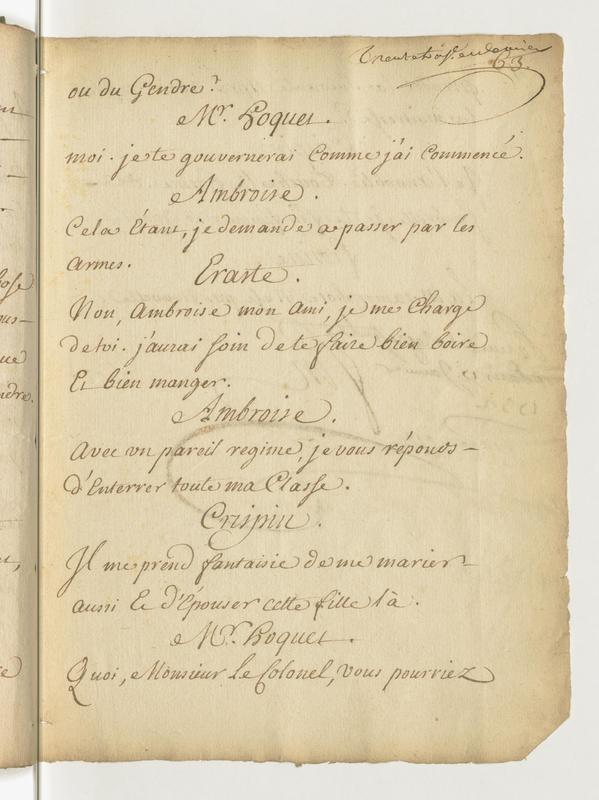 63.
ou du Gendre?
Mr. Hoquet.
moi. je te gouvernerai Comme j'ai Commencé.
Ambroise.
Cela Étant, je demande a passer par les
armes.
Eraste.
Non, Ambroise mon ami, je me Charge
de toi. j'aurai soin de te faire bien boire
Et bien manger.
Ambroise.
Avec un pareil regime, je vous réponds
d'Enterrer toute ma Classe.
Crispin.
Il me prend fantaisie de me marier
aussi Et d'Épouser cette fille là.
Mr. Hoquet.
Quoi, Monsieur le Colonel, vous pourriez